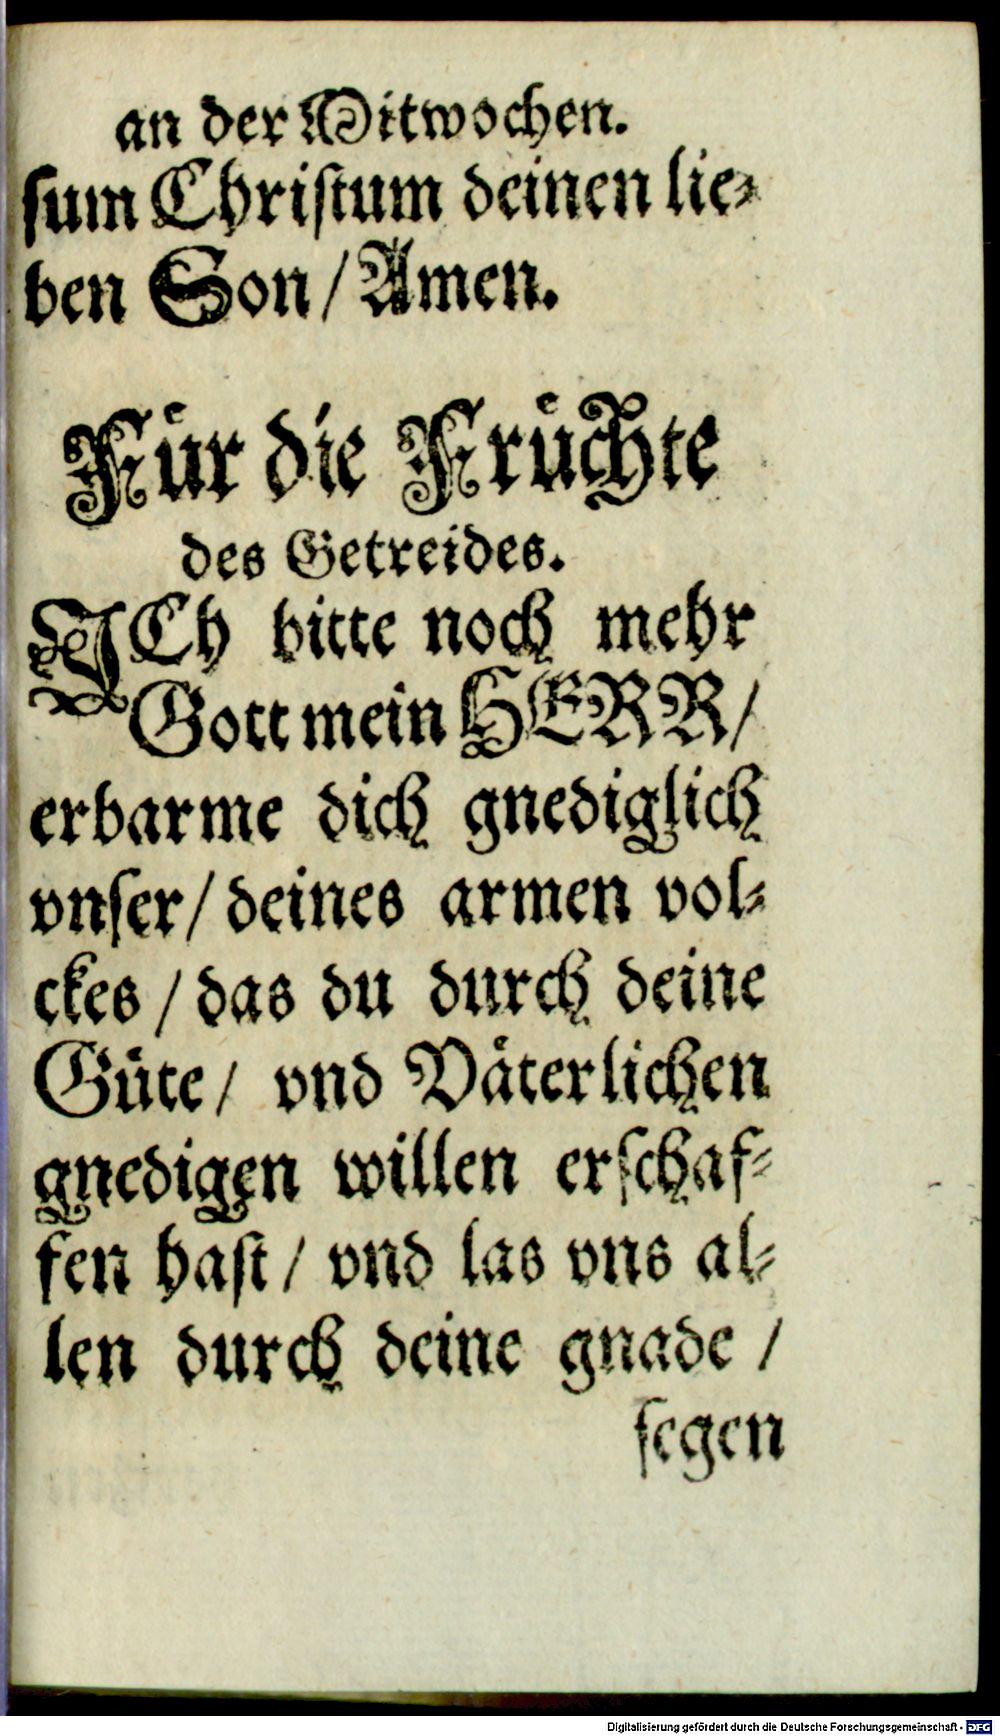 an der Mitwochen.
ſum Chriſtum deinen lie-
ben Son / Amen.
Fuͤr die Fruͤchte
des Getreides.
ICh bitte noch mehr
Gott mein HERR /
erbarme dich gnediglich
vnſer / deines armen vol-
ckes / das du durch deine
Guͤte / vnd Vaͤterlichen
gnedigen willen erſchaf-
fen haſt / vnd las vns al-
len durch deine gnade /
ſegen
Digitalisierung gefördert durch die Deutsche Forschungsgemeinschaft - DFG